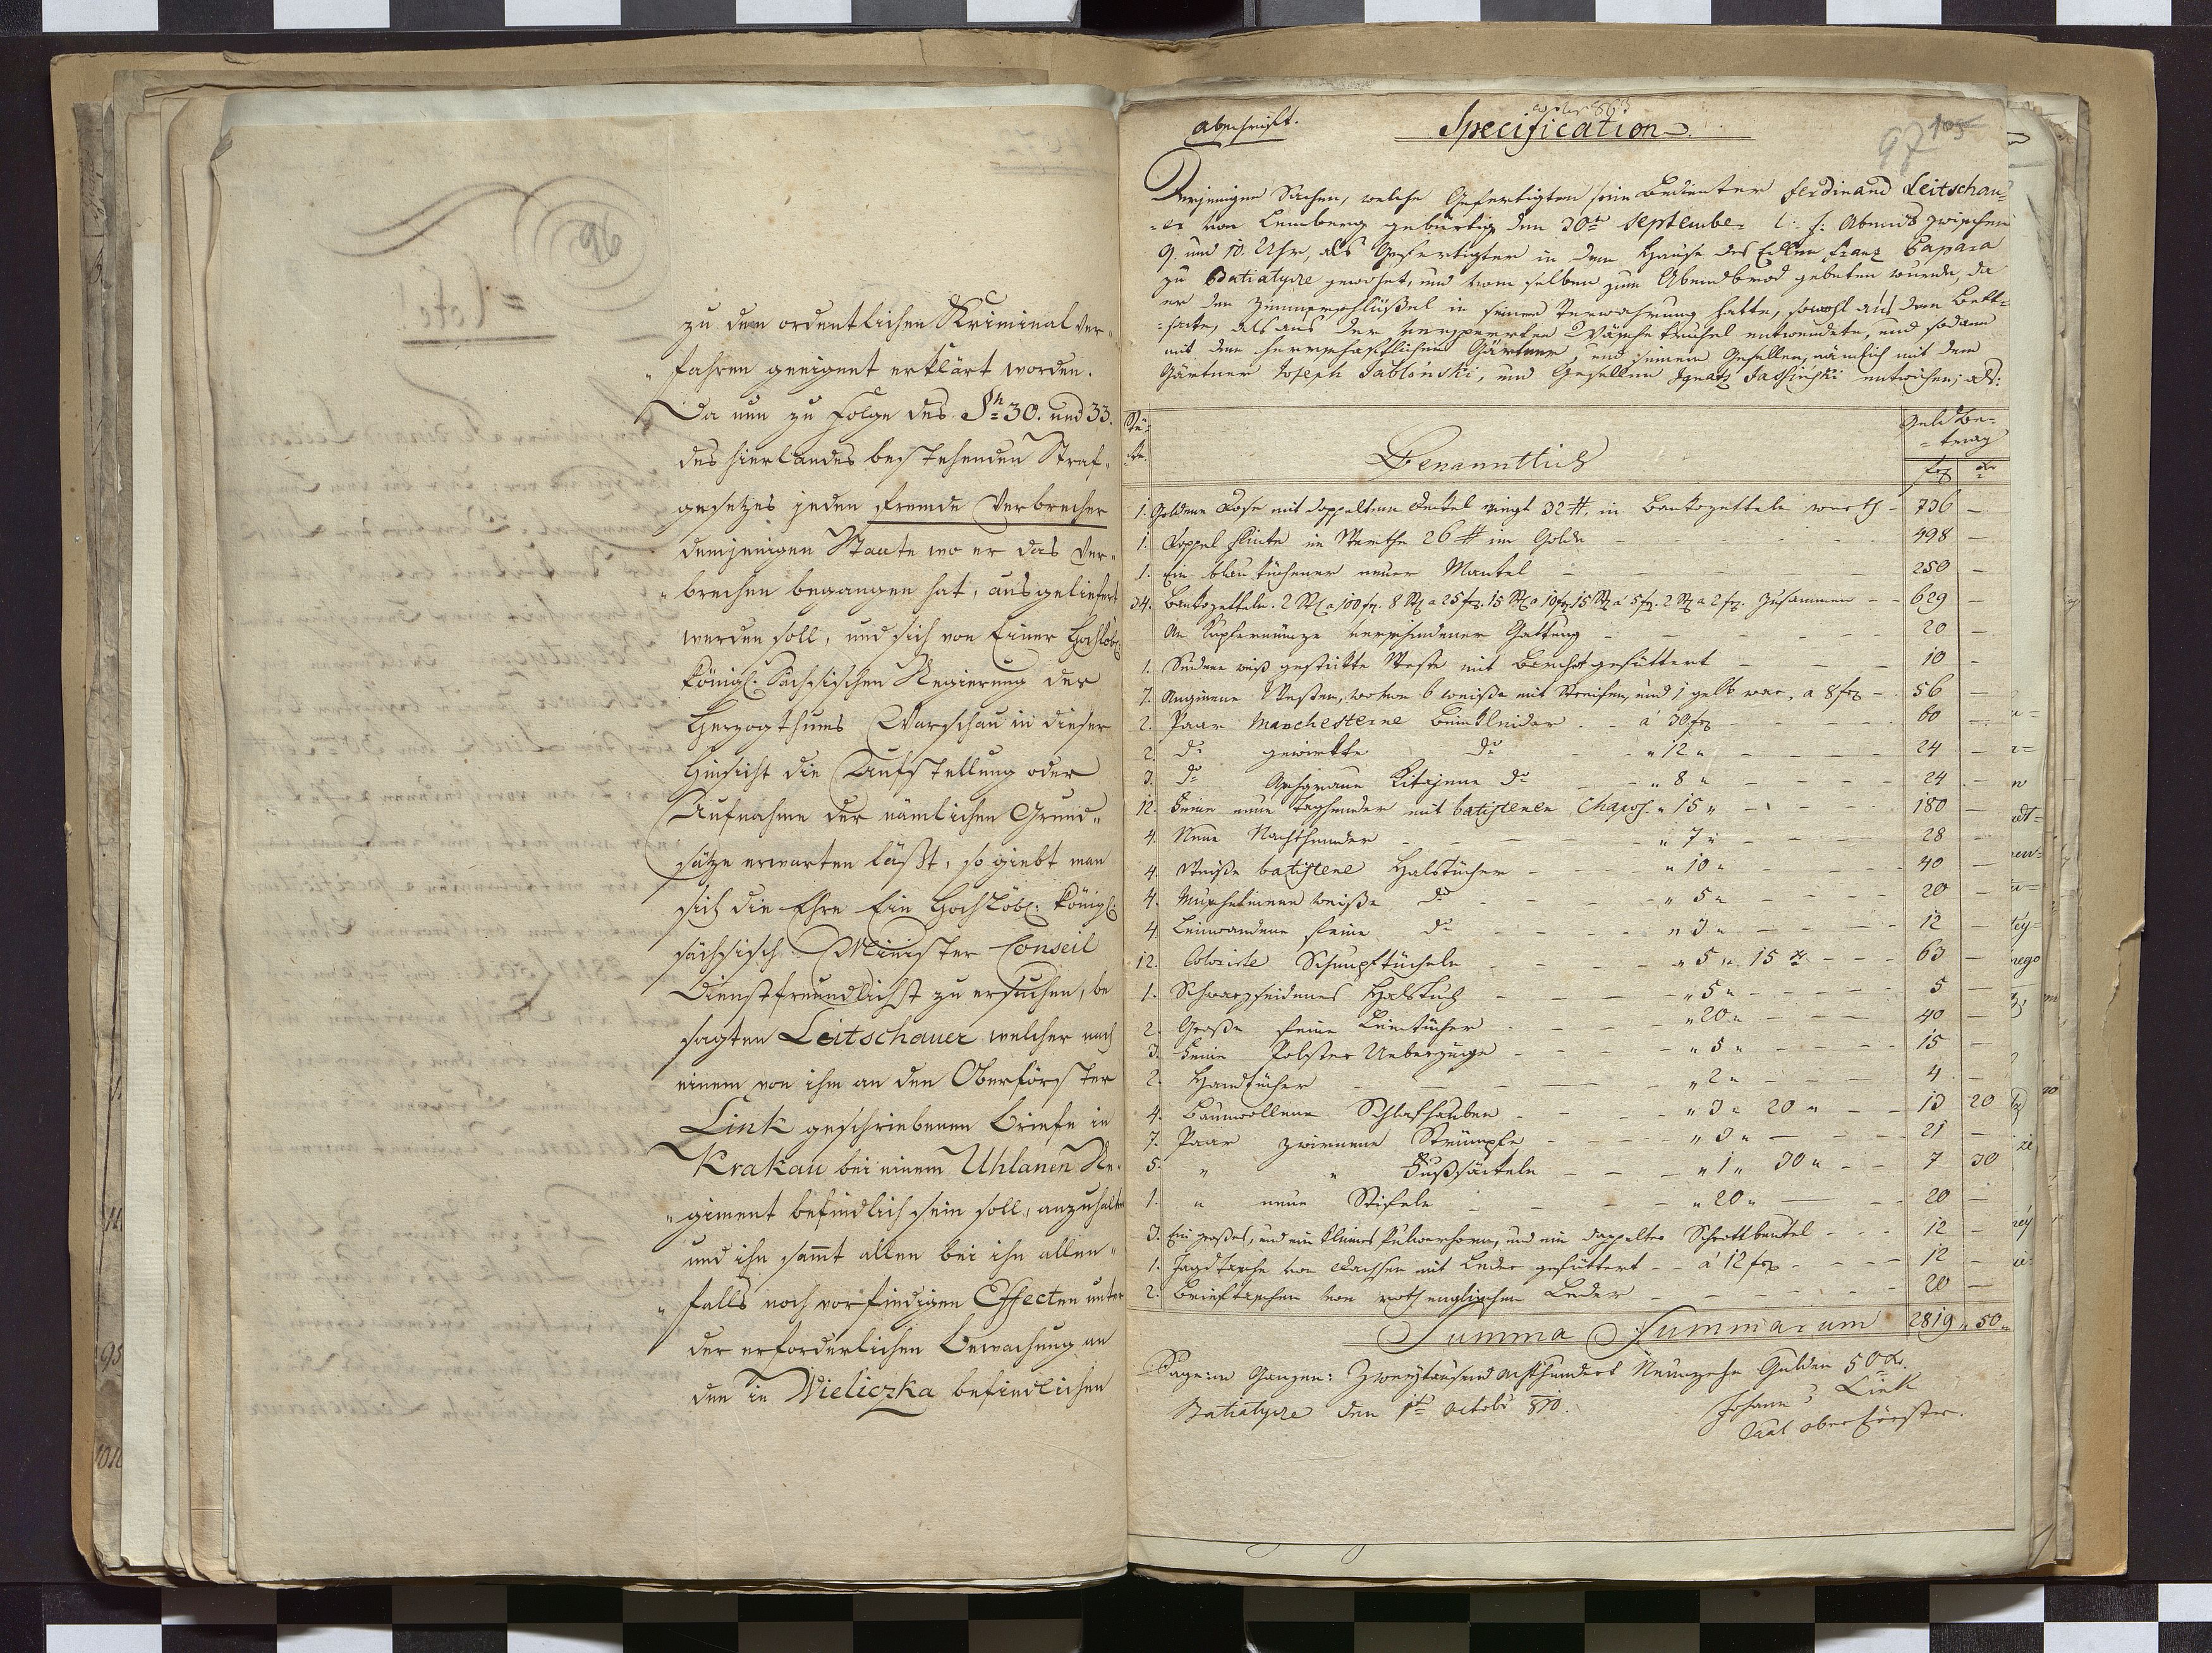 zu dem ordentlichen Kriminal Ver-
fahren geeignet erklärt worden.
Da nun zu Folge des §n 30. und 33.
des hierlandes bestehenden Straf-
gesetzes jeden fremde Verbrecher
demjenigen Staate wo er das Ver-
brechen begangen hat, ausgeliefert
werden soll, und sich von Einer Hochlöbl:
königl: Sächsischen Regierung des
Herzogthums Warschau in dieser
Hinsicht die Aufstellung oder
Aufnahme der nämlichen Grund-
sätze erwarten läßt, so giebt man
sich die Ehre Ein Hochlöbl: königl:
sächsisch. Minister Conseil
dienstfreundlichst zu ersuchen, be
sagten Leitschauer welcher nach
einem von ihm an den Oberförster
Link geschriebenen Briefe in
Krakau bei einem Uhlanen Re-
giment befindlich sein soll, anzuhalten
und ihn samt allen bei ihn allen-
falls noch vorfindigen Effecten unter
der erforderlichen Bewachung an
den in Wieliczka befindlichen
Abschrift.
Specification
97 103
Derjenigen Sachen, welche Gefertigten sein Bedienter Ferdinand Leitschau-
er von Lemberg gebürtig den 30ten September l: J: Abends zwischen
9. und 10. Uhr, als Gefertigter in dem Hause des Edlen Franz Papara
zu Batiatyze gewohnt, und vom selben zum Abendbrod gebeten wurde, da
er den Zimmerschlüßel in seiner Verwahrung hatte, sowohl aus dem Bett-
, als aus der versperrten Wäsche Truhel entwendete, und sodann
mit dem herrschaftlichen Gärtner, und seinem Gesellen, nämlich mit dem
Gärtner Joseph Jablonski, und Gesellen Ignatz Jassinski entwichen; als:
Stü-
ke.
Benanntlich
Geld Be-
trag
frg xr
1. Goldene Dose mit doppeltem Deckel wiegt 32 #, in Bankozetteln werth - 736 -
1. Doppel Flinte im Werthe 26 # im Golde - 498 -
1. Ein blau tüchener neuer Mantel - 250 -
34. Bankozetteln. 2 Stk a 100 fr. 8 Stk a 25 fr. 15 Stk a 10 fr 15 Stk a 5 fr. 2 Stk a 2 fr. Zusammen - 629 -
An Kupfermünze verschiedener Gattung - 20 -
1. Seidene weiß gestickte Weste mit Barchet gefüttert - 10 -
7. Westen, wovon 6 weiße mit Streifen, und 1 gelb war, a 8 frg - 56 -
2. Paar Manchesterne Beinkleider - á 30 frg - 60 -
2. do gewirkte do " 12 " - 24 -
3. do Aschgraue Kitajene do " 8 " - 24 -
12. Feine neue Taghemder mit batistenen Chapos. " 15 " - 180 -
4. Neue Nachthemder - " 7 " - 28 -
4. Weiße batistene Halstücher - " 10 " - 40 -
4. Muschelinene weiße do - " 5 " - 20 -
4. Leinwandene feine do - " 3 " - 12 -
12. Colorirte Schnupftücheln - " 5 " 15 xr - 63 -
1. Schwarzseidenes Halstuch - " 5 " - 5 -
2. Große feine Leintücher - " 20 " - 40 -
3. Feine Polster Ueberzüge - " 5 " - 15 -
2. Handtücher - " 2 " - 4 -
4. Baumwollene Schlafhauben - " 3 " 20 " - 13 20
7. Paar zwirnene Strümpfe - " 3 " - 21 -
5. " " Fußsöckeln - " 1 " 30 " - 7 30
1. " neue Stifeln - " 20 " - 20 -
3. Ein großes, und ein kleines Pulverhorn, und ein doppelter Schrottbeutel - 12 -
1. Jagd Tasche von Dachsen mit Leder gefüttert - á 12 frg - 12 -
2. Brieftaschen von roth englischen Leder - 20 -
Summa Summarum 2819 " 50 "
Sage: im Ganzen: Zweytausend achthundert Neunzehn Gulden 50 xr.
Batiatyze den 1ten Octobr 810.
Johann Link
Kaal oberförster.